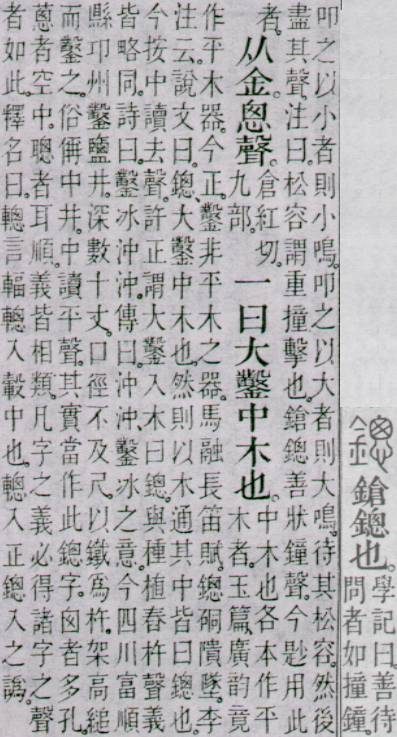 鏓 鎗鏓也。
學記曰。善待
問者如撞鐘。
叩之以小者則小鳴。叩之以大者則大鳴。待其松容。然後
盡其聲。注曰。松容謂重撞擊也。鎗鏓善狀鐘聲。今尟用此
者。
从金悤聲。
倉紅切。
九部。
一曰大鑿中木也。
中木也各本作平
木者。玉篇、廣韵竟
作平木器。今正。鑿非平木之器。馬融長笛賦。鏓硐隤墜。李
注云。說文曰。鏓、大鑿中木也。然則以木通其中皆曰鏓也。
今按中讀去聲。許正謂大鑿入木曰鏓。與種植舂杵聲義
皆略同。詩曰。鑿冰沖沖。傳曰。沖沖、鑿冰之意。今四川富順
縣邛州鑿鹽井。深數十丈。口徑不及尺。以鐵爲杵。架高縋
而鑿之。俗偁中井。中讀平聲。其實當作此鏓字。囪者多孔。
蔥者空中。聰者耳順。義皆相類。凡字之義必得諸字之聲
者如此。釋名曰。言輻入轂中也。入正鏓入之譌。